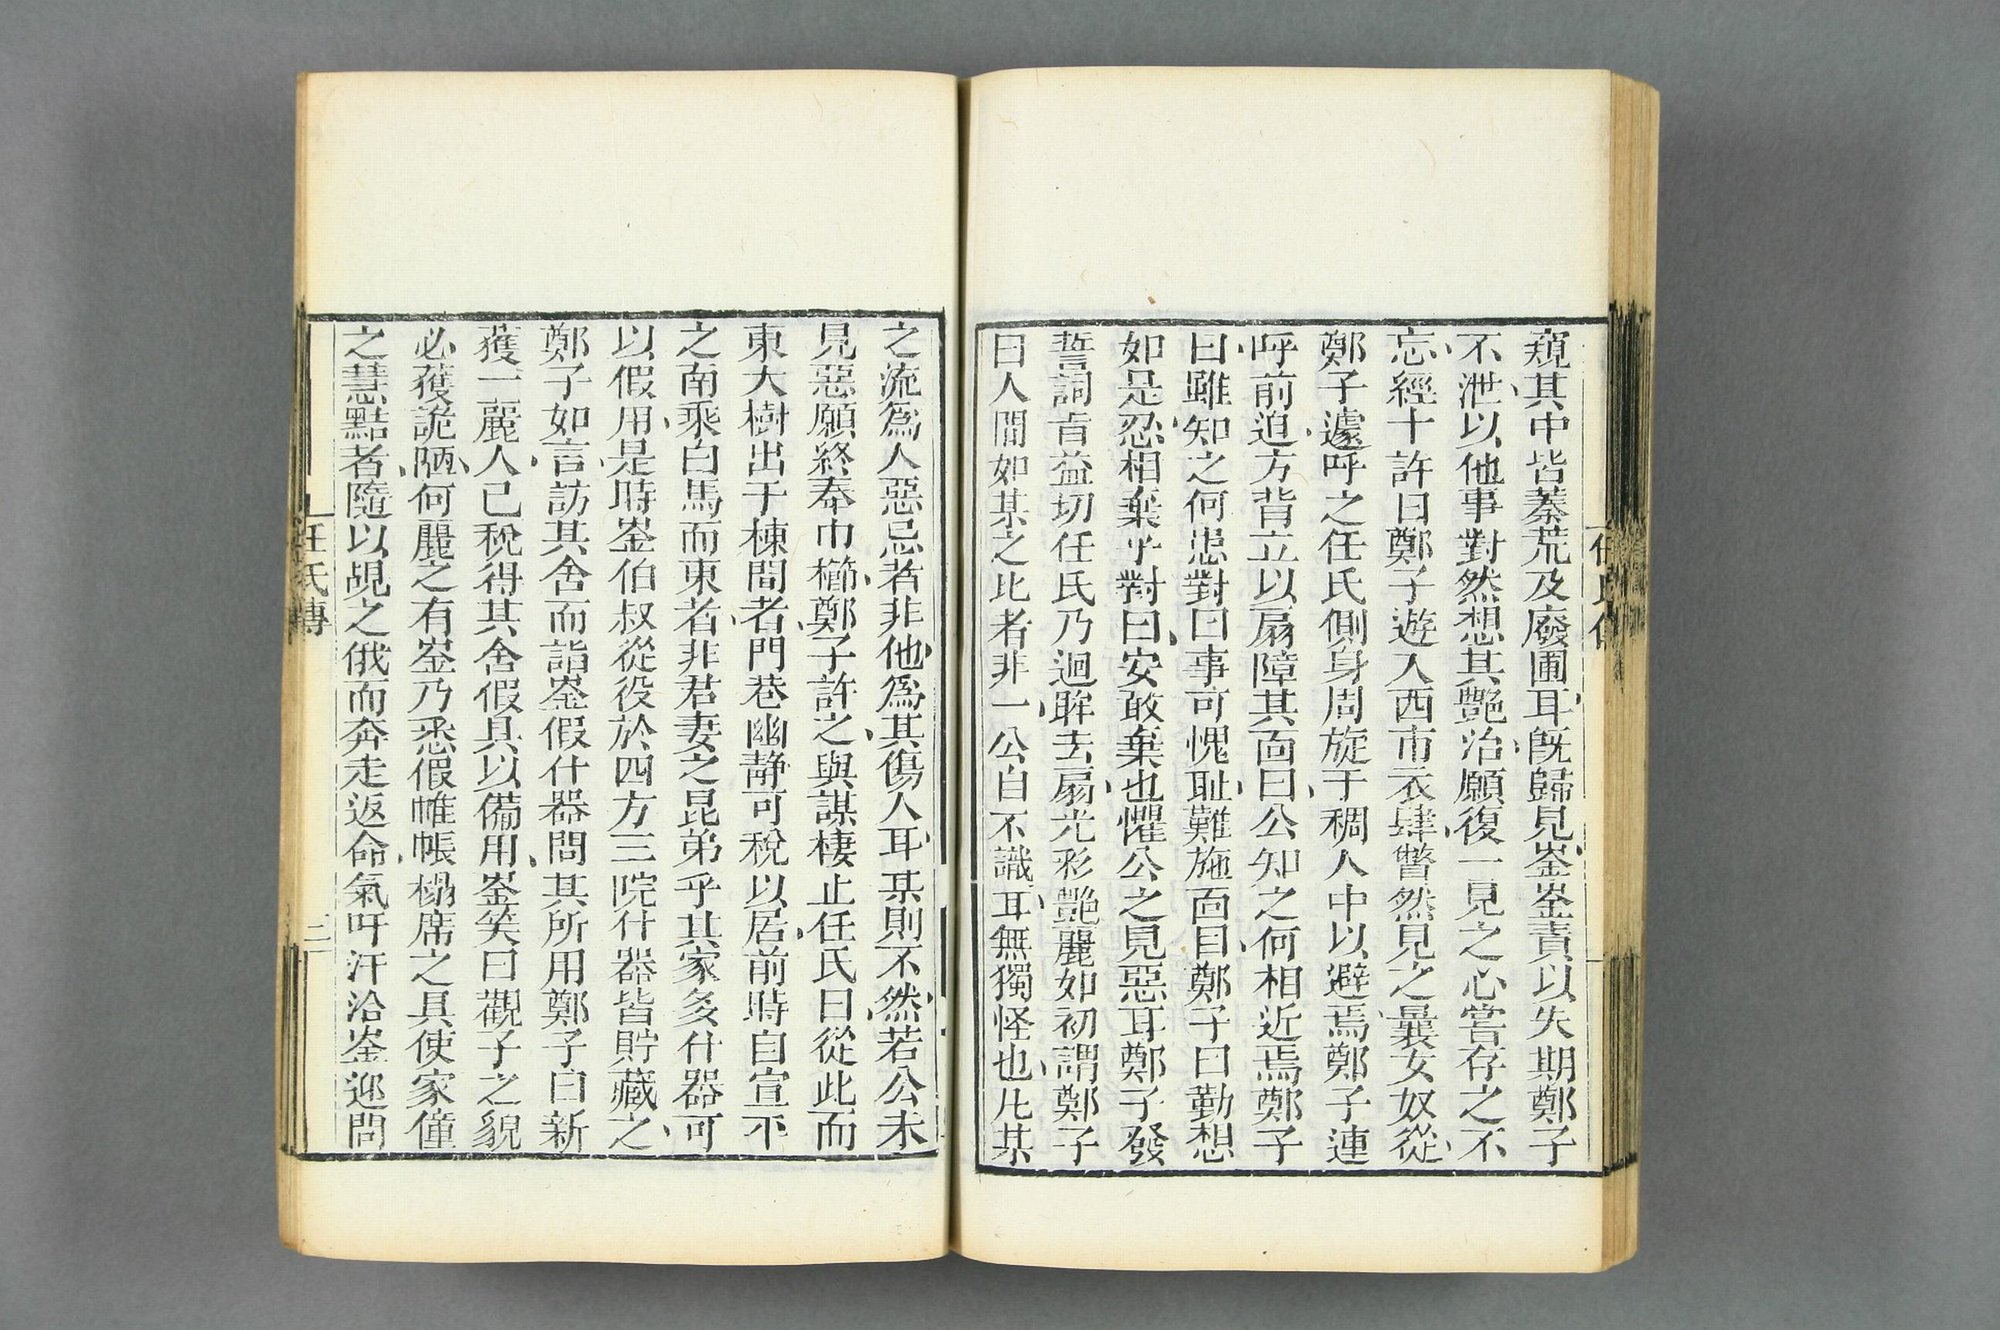 窺其中皆蓁荒及廢圃耳旣歸見崟崟責以失期鄭子
不泄以他事對然想其艷冶願復一見之心嘗存之不
忘經十許日鄭子遊入西市衣肆瞥然見之曩女奴從
鄭子遽呼之任氏側身周旋于稠人中以避焉鄭子連
呼前迫方背立以扇障其面曰公知之何相近焉鄭子
曰雖知之何患對曰事可愧耻難施面目鄭子曰勤想
如是忍相棄乎對曰安敢棄也懼公之見惡耳鄭子發
誓詞旨益切任氏乃迴眸去扇光彩艷麗如初謂鄭子
曰人間如某之比者非一公自不識耳無獨怪也凡某
之流爲人惡忌者非他爲其傷人耳某則不然若公未
見惡願終奉巾櫛鄭子許之與謀棲止任氏曰從此而
東大樹出于棟間者門巷幽靜可稅以居前時自宣平
之南乘白馬而東者非君妻之昆弟乎其家多什器可
以假用是時崟伯叔從役於四方三院什器皆貯藏之
鄭子如言訪其舍而詣崟假什器問其所用鄭子曰新
獲一麗人已稅得其舍假具以備用崟笑曰觀子之貌
必獲詭陋何麗之有崟乃悉假帷帳榻席之具使家僮
之慧黠者隨以覘之俄而奔走返命氣吁汗洽崟迎問
任氏傳
三